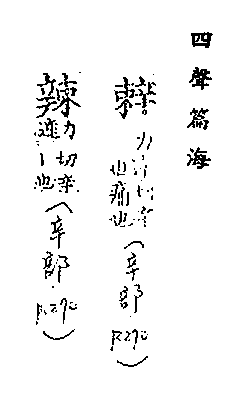 四聲篇海
力 切辛
也痛也
(辛部
P.270)
辣
力 切辛
達丨也
(辛部
P.270)